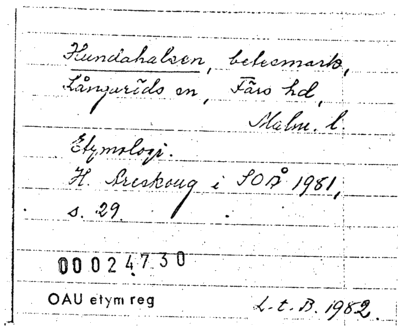 Hundahalsen, betesmark,
Långaröds sn, Färs hd,
Malm. l.
Etymologi.
H. Areskoug i SOÅ 1981,
s. 29
00024730
OAU etym reg
L.t.B. 1982.